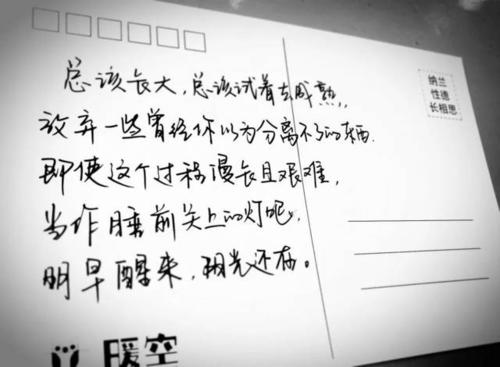 总该长大,总该试着去成熟,
放弃一些曾经你以为分离不了的东西.
即使这个过程漫长且艰难,
当作睡前关上的灯吧,
明早醒来,阳光还在。
纳兰
性德
长相思
暖空